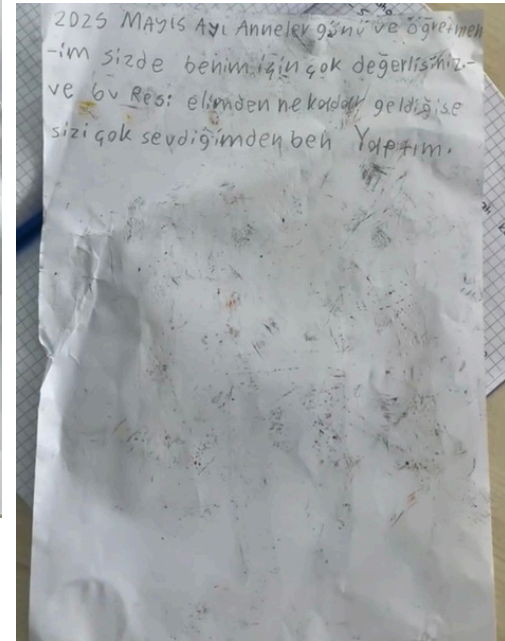 2025 MAYIS Ayı Anneler günü ve öğretmen
-im sizde benim için çok değerlisiniz.-
ve bu Resi elimden ne kadar geldiğise
sizi çok sevdiğimden ben Yaptım.